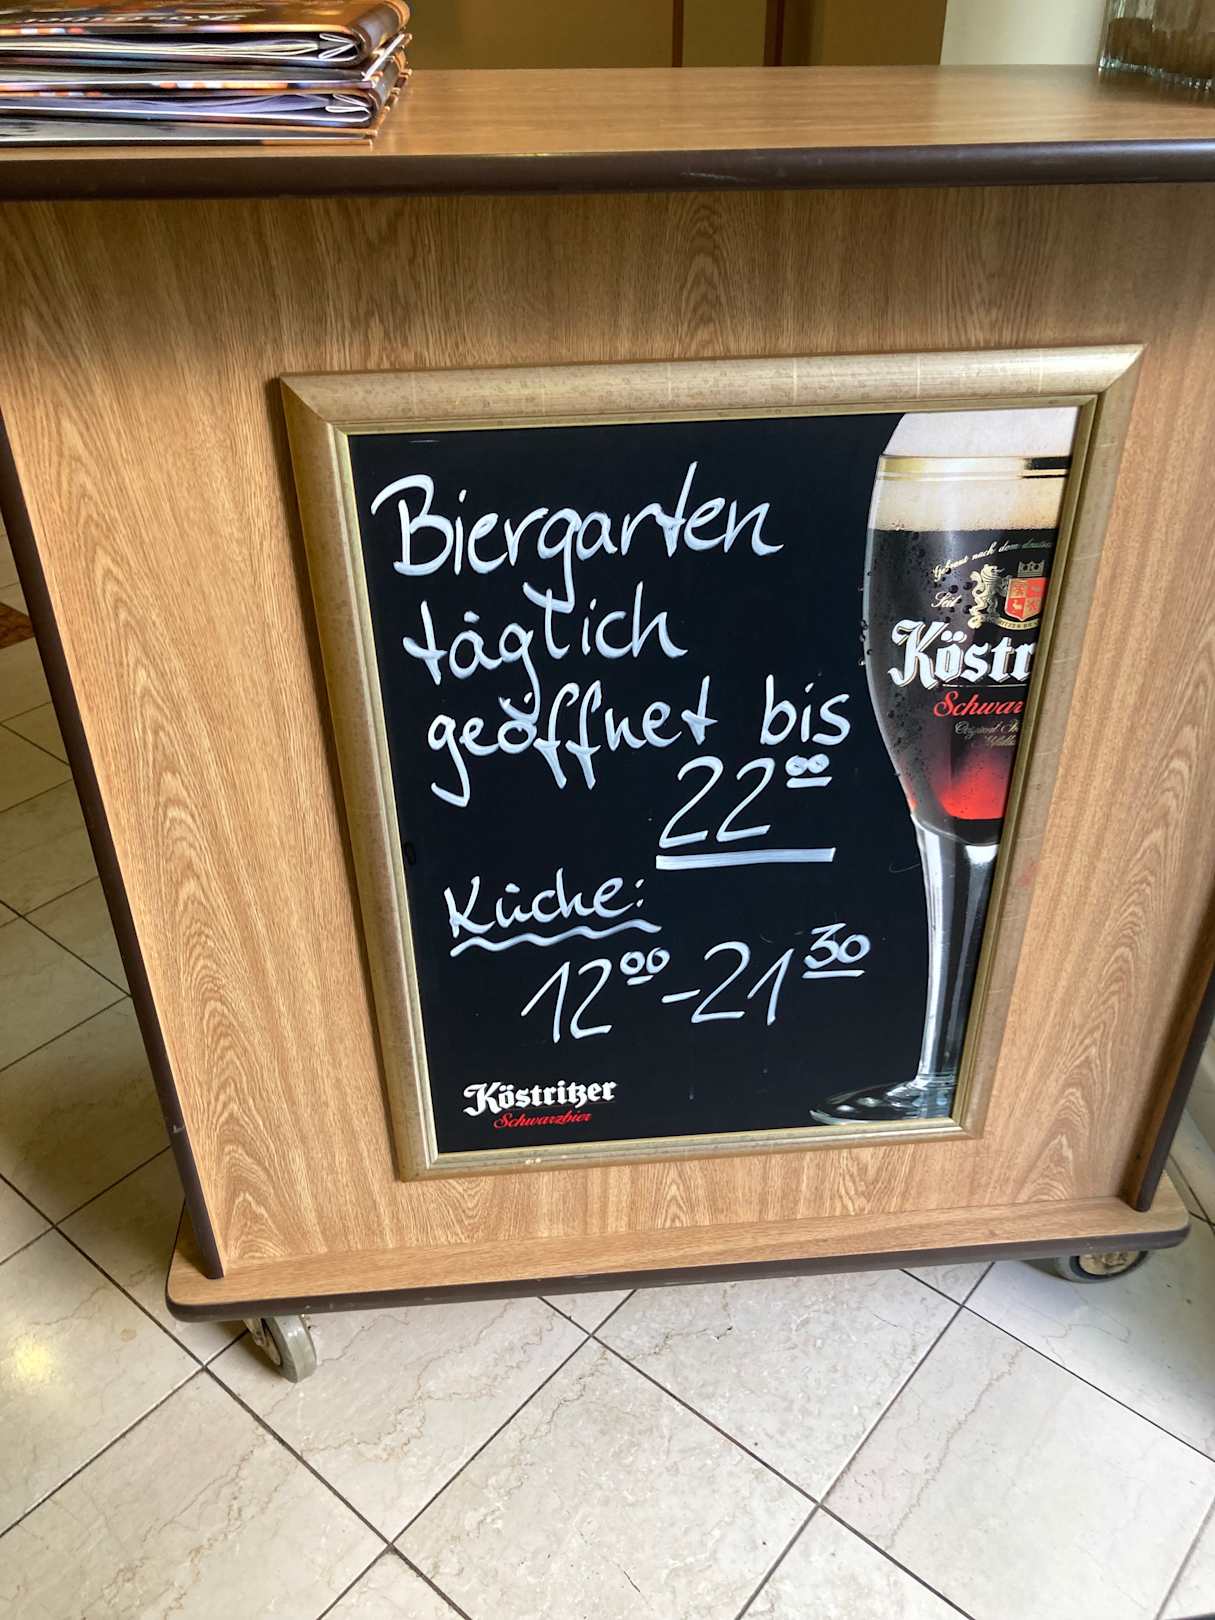 Biergarten
täglich
geöffnet bis
22⁰⁰
Küche:
12⁰⁰-21³⁰
Köstritzer
Schwarzbier
Gebraut nach dem
Seit
Köstr
Schwar